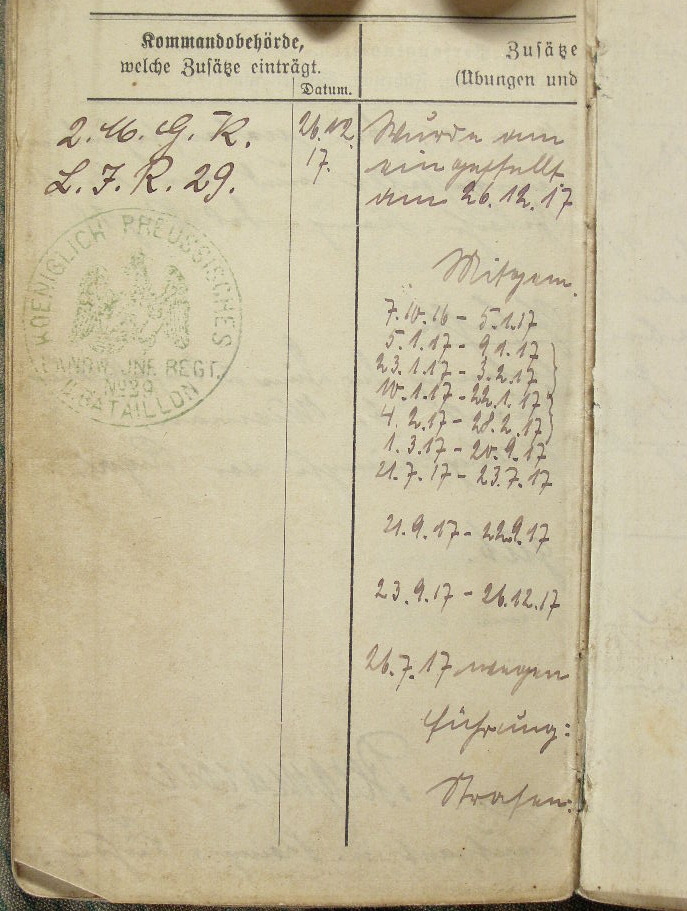 Kommandobehörde,
welche Zusätze einträgt.
Datum.
Zusätze
(Übungen und
2. M. G. K.
L. I. R. 29.
26.12.
17.
Wurde am
eingestellt
am 26.12.17
KOENIGLICH PREUSSISCHES
LANDW. INF. REGT.
No 29
BATAILLON
Mitgem.
7.10.16 - 5.1.17
5.1.17 - 9.1.17
23.1.17 - 3.2.17
10.1.17 - 22.1.17
4.2.17 - 28.2.17
1.3.17 - 20.9.17
21.7.17 - 23.7.17
21.9.17 - 22.9.17
23.9.17 - 26.12.17
26.7.17 wegen
Führung:
Strafen: